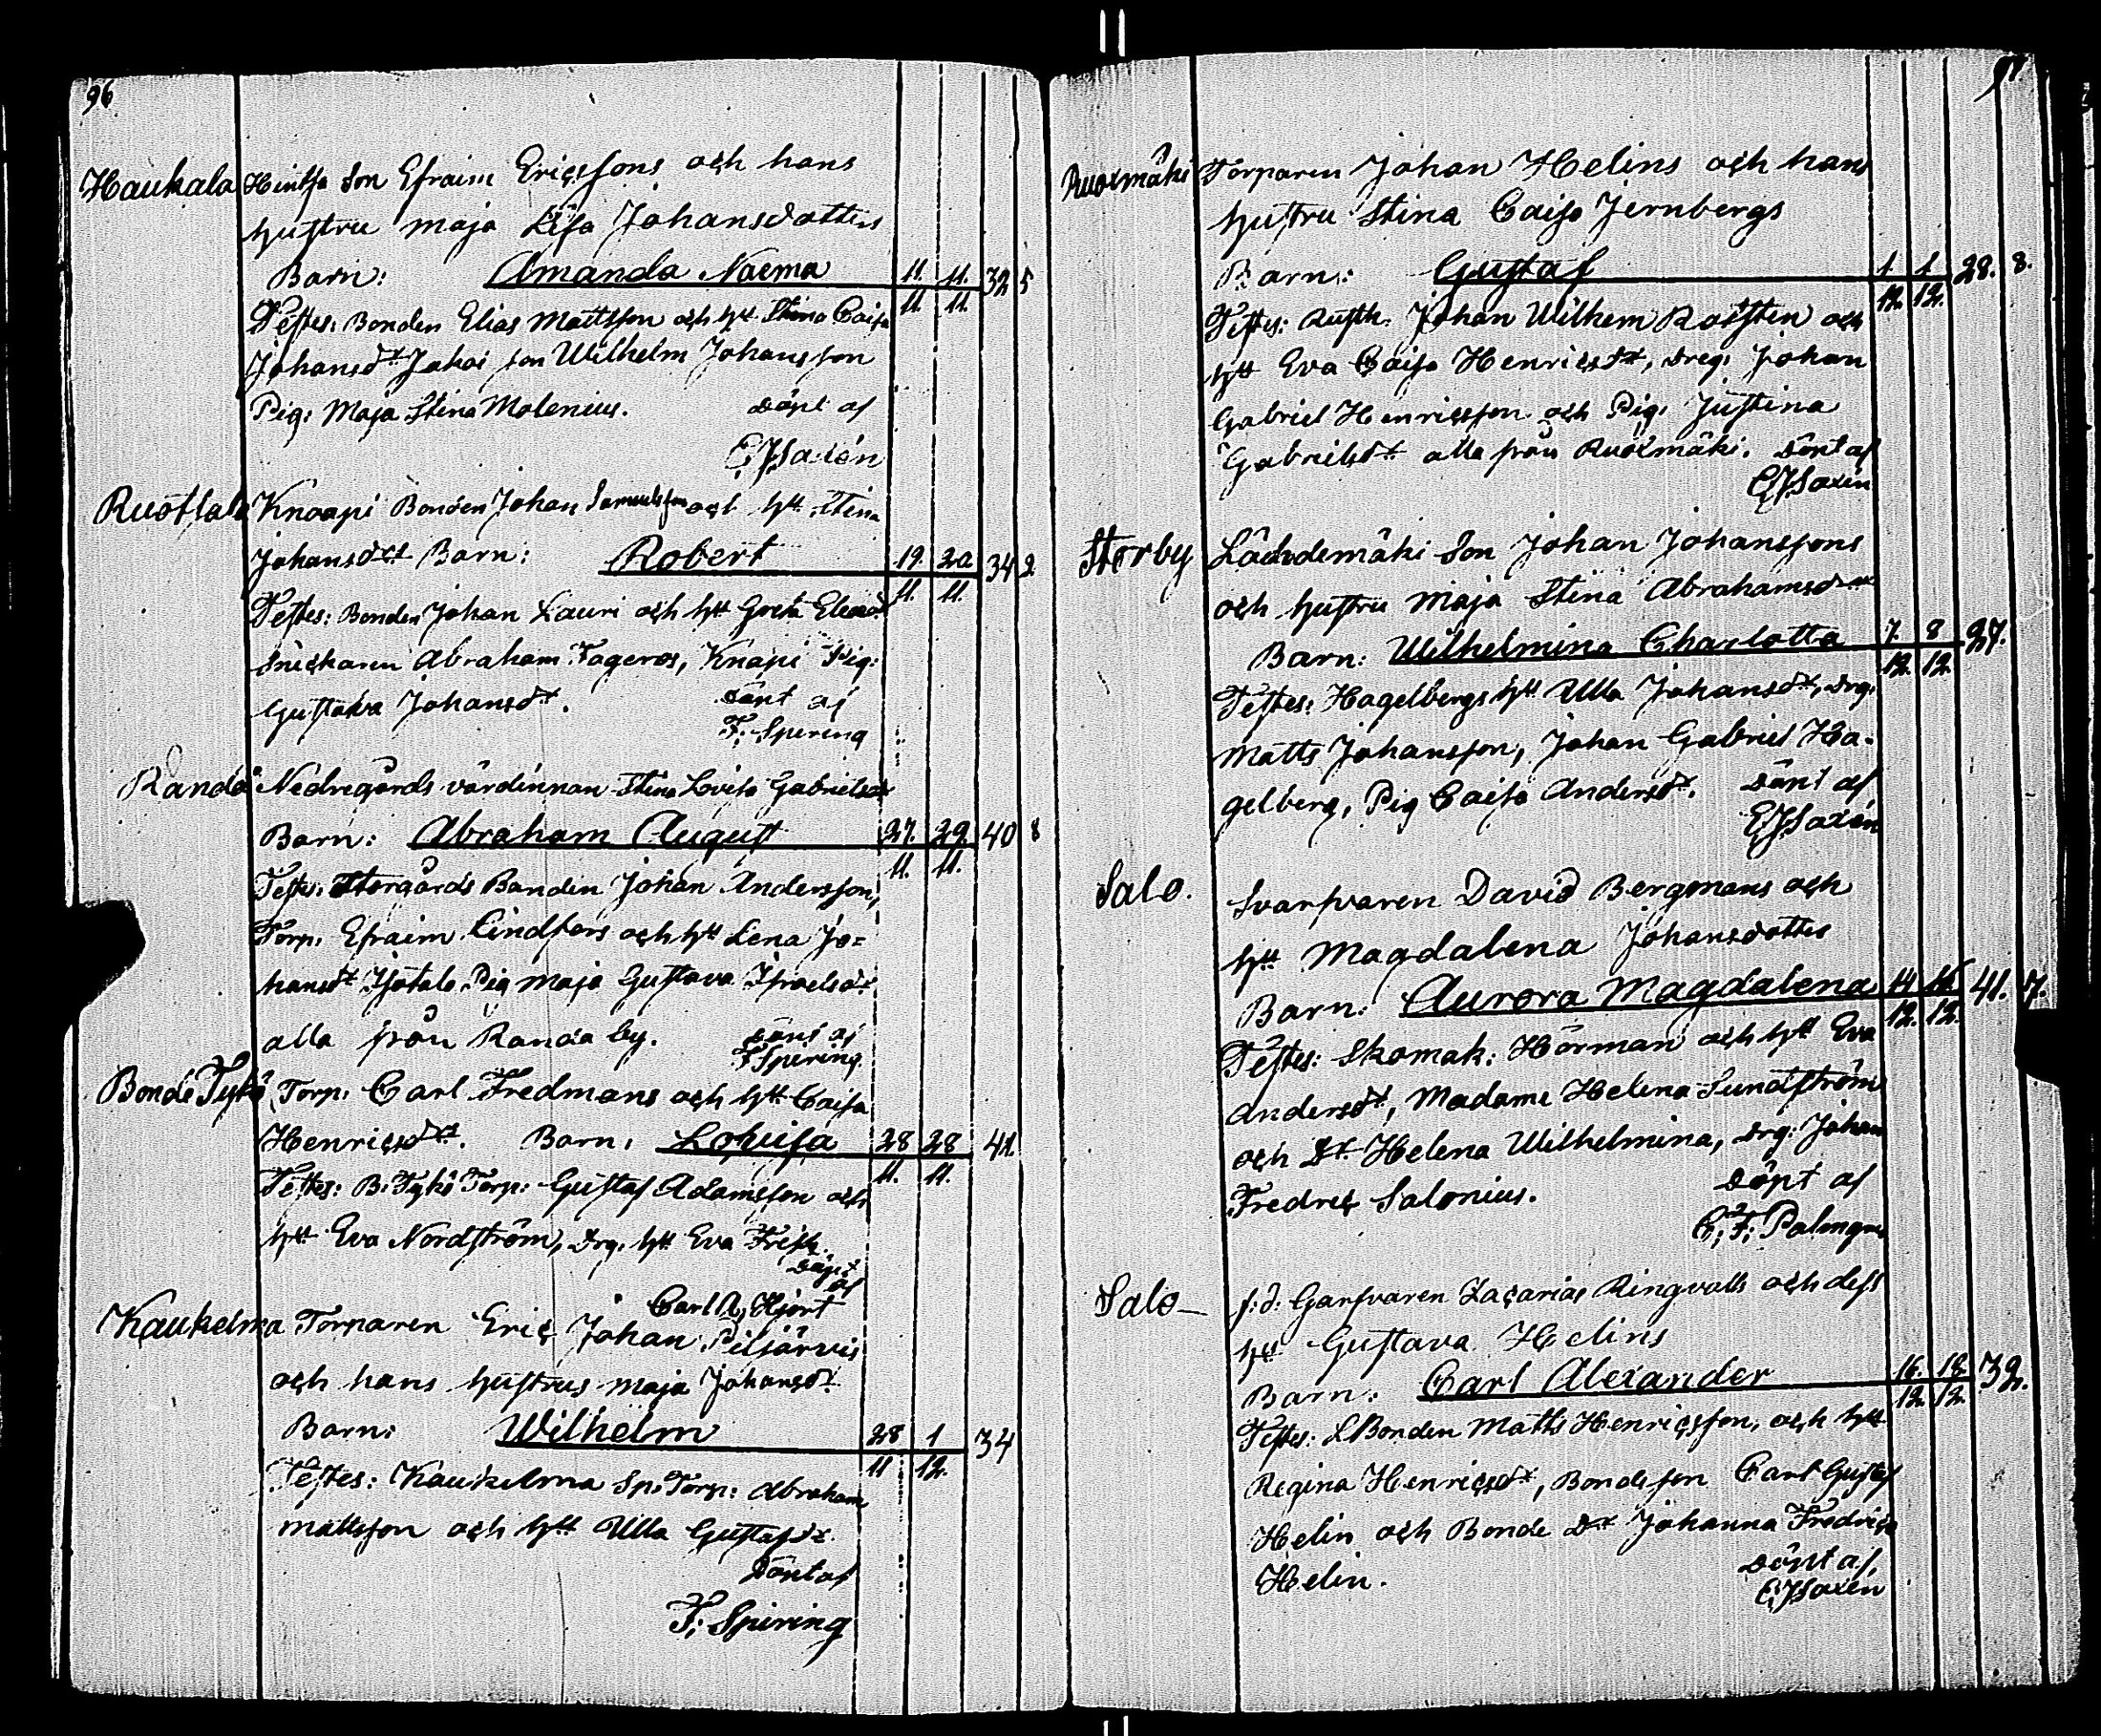 96
Haukala Hintsa Son Efraim Ericssons och hans
hustru Maja Lisa Johansdotters
Barn: Amanda Naema 11. 11. 32 5
11. 11.
Testes: Bonden Elias Mattsson och htt Stina Caisa
Johansdtt Jakoi son Wilhelm Johansson
Pig: Maja Stina Molenius. Döpt af
EJSaxén
Ruottala Knaapi Bonden Johan Samuelsson och htt Stina
Johansdtt Barn: Robert 19. 20 34 2
11. 11.
Testes: Bonden Johan Lauri och htt Greta
Snickaren Abraham Fageros, Knapi Pig:
Gustava Johansdtt. Döpt af
F. Spering
Randå Nedregårds värdinnan Stina Lovisa Gabrielsdr
Barn: Abraham August 27. 29. 40 8
11. 11.
Testes: Storgårds Bonden Johan Andersson,
Torp. Efraim Lindfors och htt Lena Jo=
hansdt Isotalo Pig Maja Gustava Israelsdr
alla från Randa by. Döpt af
F Spering
Bonde Tykö Torp. Carl Fredmans och htt Caisa
Henricsdtt. Barn: Lovisa 28 28 41
11. 11.
Testes: B. Tykö Torp: Gustaf Adamsson och
htt Eva Nordström, Drg. htt Eva Frisk.
Döpt
af
Carl A. Hjort
Kaukelma Torparen Eric Johan Piljärvis
och hans hustrus Maja Johansdt
Barn: Wilhelm 28 1 34
11 12.
Testes: Kaukelma Sp. Torp: Abraham
Mattsson och htt Ulla Gustafsdr.
Döpt af
F. Spering
97
Ruotmäki Torparen Johan Helins och hans
hustru Stina Caisa Jernbergs
Barn: Gustaf 1. 1. 28. 8.
12. 12.
Testes: Rusth. Johan Wilhem Rotsten och
htt Eva Caisa Henricsdt, Dreg. Johan
Gabriel Henricsson och Pig. Justina
Gabrielsdt alla från Ruotmäki. Döpt af
EJSaxén
Storby Lähdemäki Son Johan Johanssons
och hustru Maja Stina Abrahamsdtt
Barn: Wilhelmina Charlotta 7. 8 27.
12. 12.
Testes: Hagelbergs htt Ulla Johansdt, Drg.
Matts Johansson, Johan Gabriel Ha-
gelberg, Pig Caisa Andersdt. Döpt af
EJSaxén
Salo. Svarfvaren David Bergmans och
htt Magdalena Johansdotter
Barn: Aurora Magdalena 14 16 41. 7.
12. 12.
Testes: Skomak: Hörman och htt Eva
Andersdt, Madame Helena Sundström
och Dt Helena Wilhelmina, Drg. Johan
Fredric Salonius. Döpt af
C. F. Palmgren
Salo— f.d. Garfvaren Zacarias Ringvalls och dess
htt Gustava Helins
Barn: Carl Alexander 16. 18 32.
12. 12.
Testes: L Bonden Matts Henricsson, och htt
Regina Henricsdt, Bondeson Carl Gustaf
Helin och Bonde Dt Johanna Fredrica
Helin. Döpt af,
EJSaxén